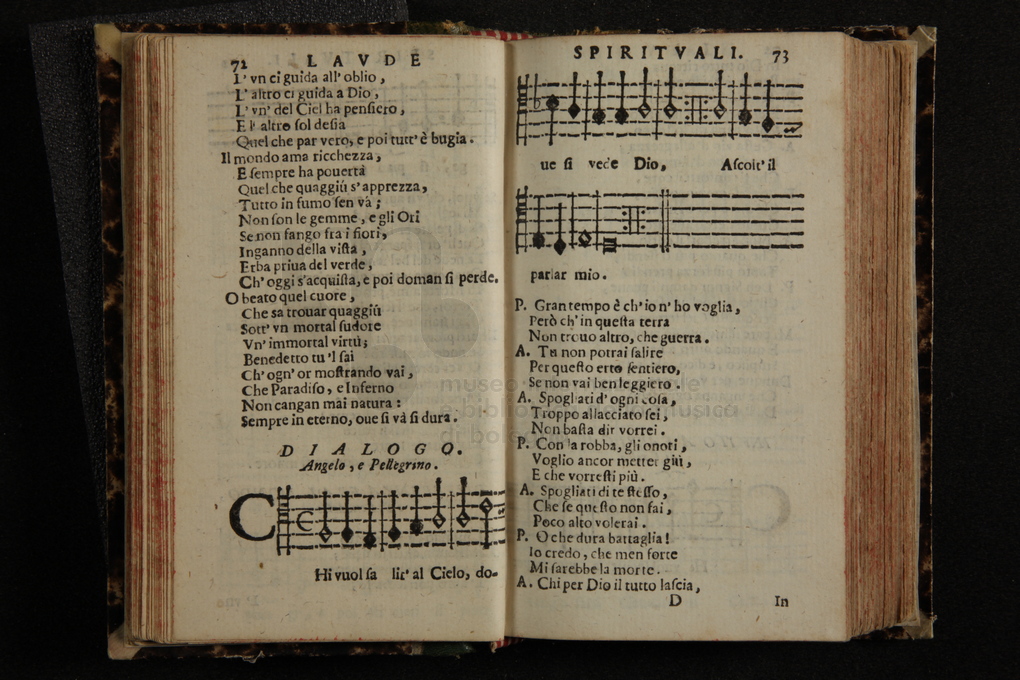 72 LAVDE
L' vn ci guida all' oblio,
L' altro ci guida a Dio,
L' vn' del Ciel ha pensiero,
E l' altro sol desia
Quel che par vero, e poi tutt' è bugia.
Il mondo ama ricchezza,
E sempre ha pouertà
Quel che quaggiù s' apprezza,
Tutto in fumo sen và;
Non son le gemme, e gli Ori
Se non fango fra i fiori,
Inganno della vista,
Erba priua del verde,
Ch' oggi s'acquista, e poi doman si perde.
O beato quel cuore,
Che sa trouar quaggiù
Sott' vn mortal sudore
Vn' immortal virtù;
Benedetto tu 'l sai
Ch' ogn' or mostrando vai,
Che Paradiso, e Inferno
Non cangan mai natura:
Sempre in eterno, oue si và si dura.
DIALOGO.
Angelo, e Pellegrino.
C
Hi vuol sa lir' al Cielo, do-
SPIRITVALI. 73
ue si vede Dio, Ascolt' il
parlar mio.
P. Gran tempo è ch' io n' ho voglia,
Però ch' in questa terra
Non trouo altro, che guerra.
A. Tu non potrai salire
Per questo erto sentiero,
Se non vai ben leggiero.
A. Spogliati d' ogni cosa,
Troppo allacciato sei,
Non basta dir vorrei.
P. Con la robba, gli onori,
Voglio ancor metter giù,
E che vorresti più.
A. Spogliati di te stesso,
Che se questo non fai,
Poco alto volerai.
P. O che dura battaglia!
Io credo, che men forte
Mi sarebbe la morte.
A. Chi per Dio il tutto lascia,
D In
museo
biblioteca musica
di bolo